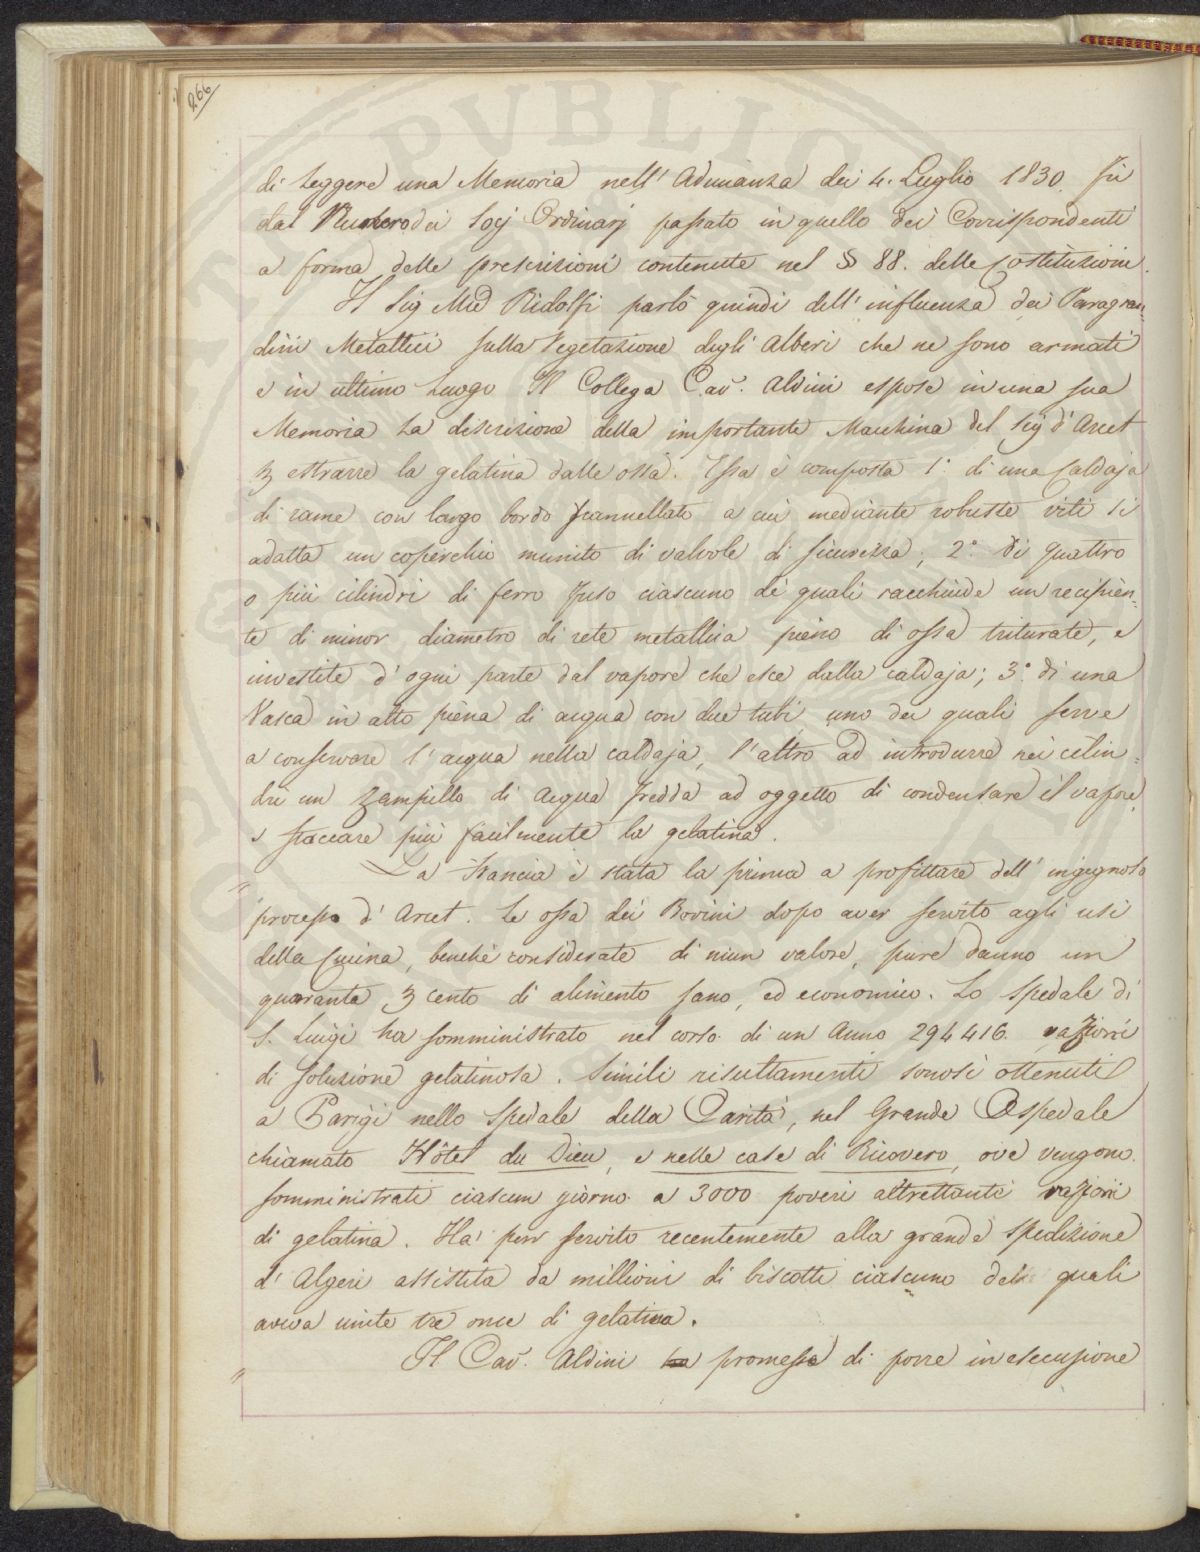 266
di leggere una Memoria nell' Adunanza dei 4. Luglio 1830. fù
dal Numero dei Socj Ordinarj passato in quello dei Corrispondenti
a forma delle prescrizioni contenute nel § 88. delle Costituzioni.
Il Sig Med Ridolfi parlò quindi dell' influenza dei Paragran-
dini Metallici sulla Vegetazione degli Alberi che ne sono armati
e in ultimo luogo Il Collega Cav. Aldini espose in una sua
Memoria la discrizione della importante Macchina del Sig d' Arcet
ꝫ estrarre la gelatina dalle ossa. Essa è composta 1.° di una Caldaja
di rame con largo bordo scannellato a cui mediante robuste viti si
adatta un coperchio munito di valvole di sicurezza; 2.° Di quattro
o più cilindri di ferro fuso ciascuno de' quali racchiude un recipien-
te di minor diametro di rete metallica pieno di ossa triturate, e
investite d' ogni parte dal vapore che esce dalla caldaja; 3.° di una
Vasca in alto piena di acqua con due tubi uno dei quali serve
a conservare l' acqua nella caldaja, l' altro ad introdurre nei cilin-
dri un zampillo di acqua fredda ad oggetto di condensare il vapore,
e staccare più facilmente la gelatina.
" La Francia è stata la prima a profittare dell' ingegnoso
processo d' Arcet. Le ossa dei Bovini dopo aver servito agli usi
della Cucina, benchè considerate di niun valore, pure danno un
quaranta ꝫ cento di alimento sano, ed economico. Lo Spedale di
S. Luigi ha somministrato nel corso di un Anno 294416. razioni
di soluzione gelatinosa. Simili risultamenti sonosi ottenuti
a Parigi nello Spedale della Carità, nel Grande Ospedale
chiamato Hôtel du Dieu, e nelle case di Ricovero, ove vengono
somministrati ciascun giorno a 3000 poveri altrettante razioni
di gelatina. Ha' pur servito recentemente alla grande spedizione
d' Algeri assistita da millioni di biscotti ciascuno dei quali
aveva unite tre once di gelatina.
" Il Cav. Aldini ha promesso di porre in esecuzione